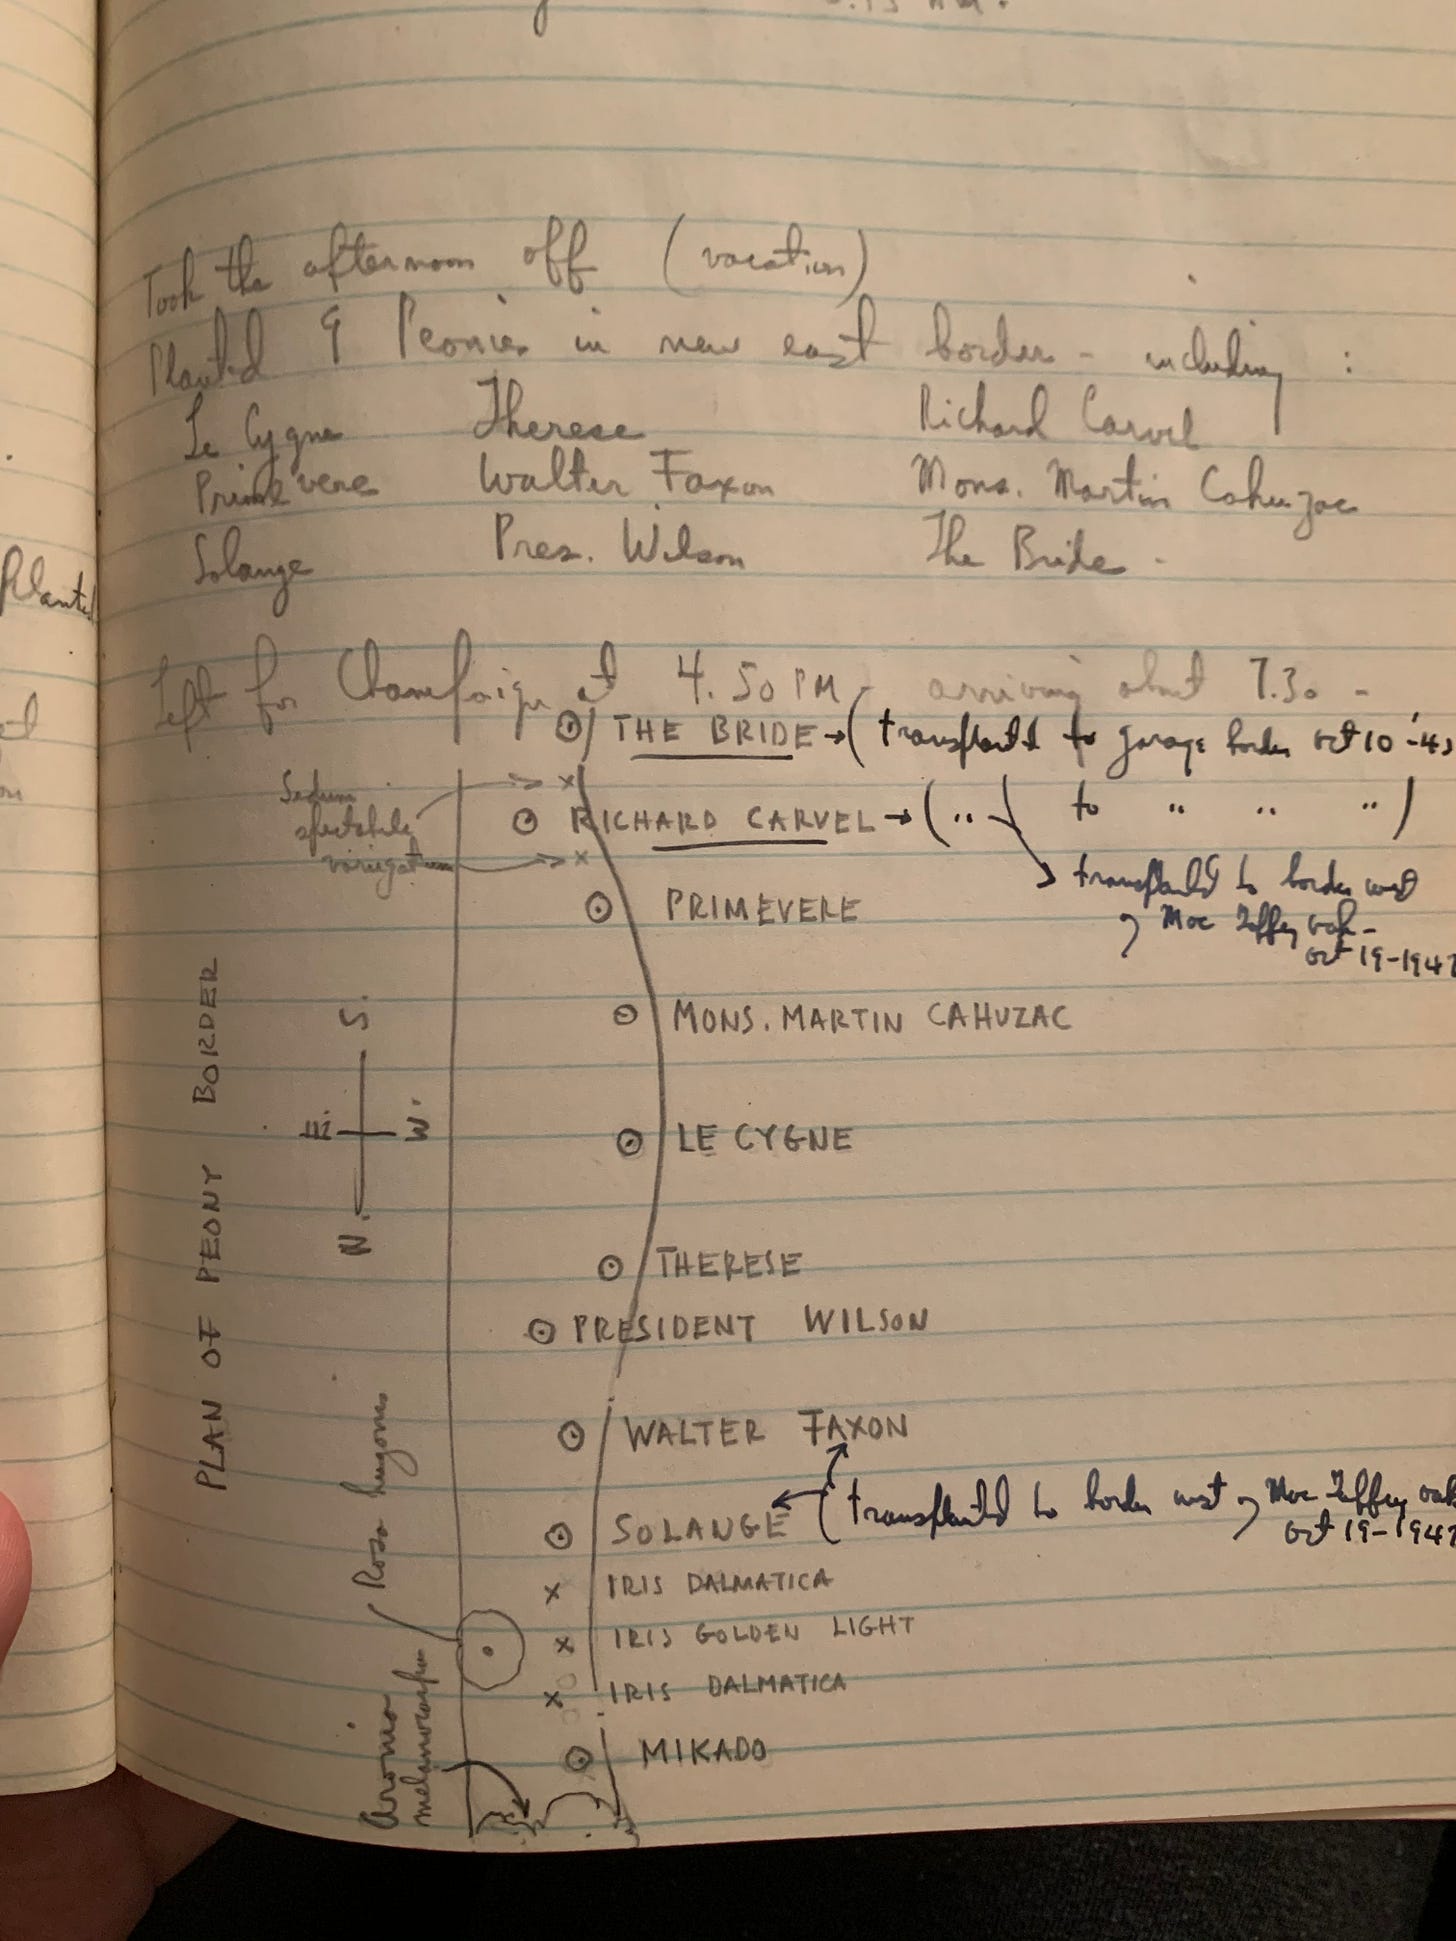 Took the afternoon off (vacation)
Planted 9 Peonies in new east border - including :
Le Cygne Therese Richard Carvel
Primevere Walter Faxon Mons. Martin Cahuzac
Solange Pres. Wilson The Bride -
Planted
Left for Champaign at 4.50 PM - arriving about 7.30 -
THE BRIDE → (transplanted to garage border Oct 10 -'4
Sedum
spectabile
variegatum
RICHARD CARVEL → ( " to " " " )
transplanted to border west
of Mac oak -
Oct 19 - 194
PRIMEVERE
MONS. MARTIN CAHUZAC
PLAN OF PEONY BORDER
S.
E. W.
N.
LE CYGNE
THERESE
PRESIDENT WILSON
WALTER FAXON
SOLANGE (transplanted to border west of Mac oak
Oct 19 - 194
Rosa hugonis
IRIS DALMATICA
IRIS GOLDEN LIGHT
IRIS DALMATICA
Aronia
melanocarpa
MIKADO